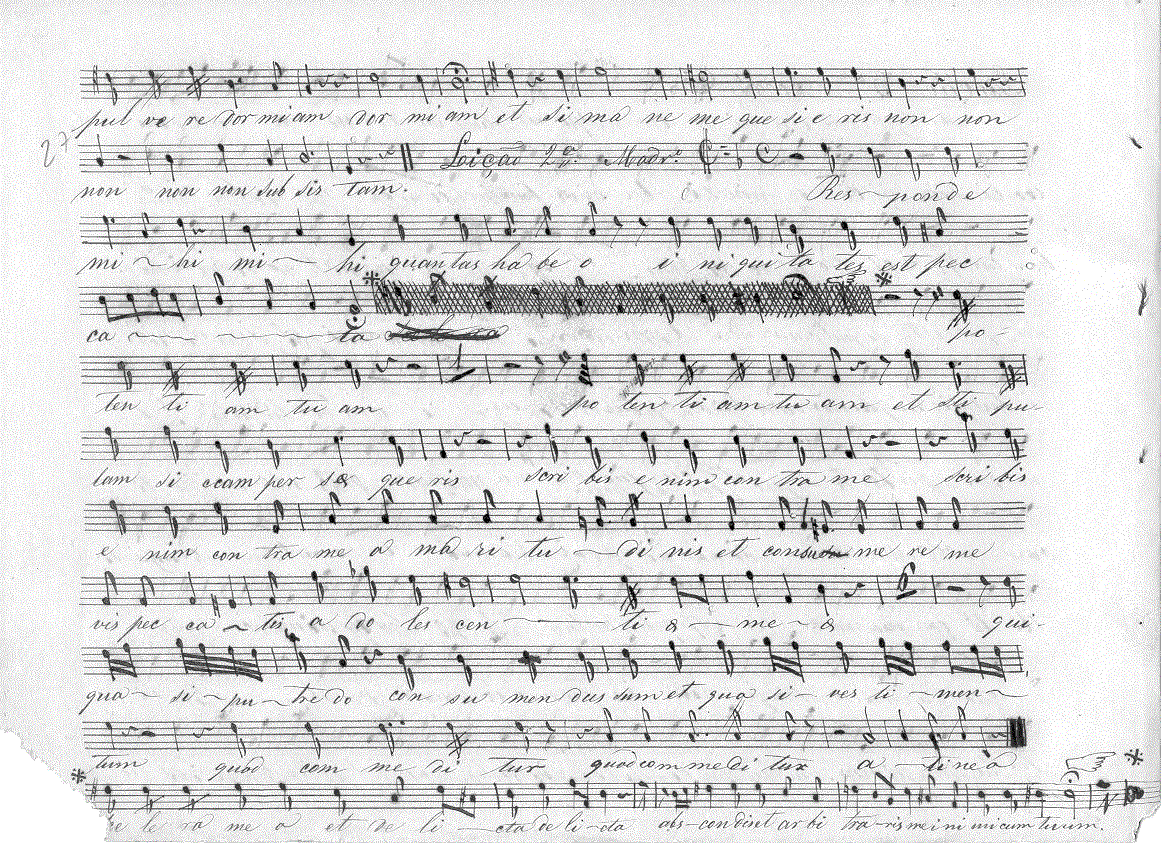 pul ve re dor mi am dor mi am et si ma ne me que si e ris non non
27
non non non sub sis tam. Lição 2ª Madrº C Res ponde
mi hi mi hi quantas ha be o i ni qui ta tes est pec
ca ta po-
ten ti am tu am po ten ti am tu am et sti pu-
lam si ccam per se que ris scri bis e nim con tra me scri bis
e nim con tra me a ma ri tu di nis et con su me re me
vis pec ca tis a do les cen ti æ me æ qui-
qua si pu tre do con su men dus sum et qua si ves ti men
tum quod com me di tur quod com me di tur a ti ne a
le ra me a et de li cta de li cta abs con di set ar bi tra ris me i ni mi cum tu um.